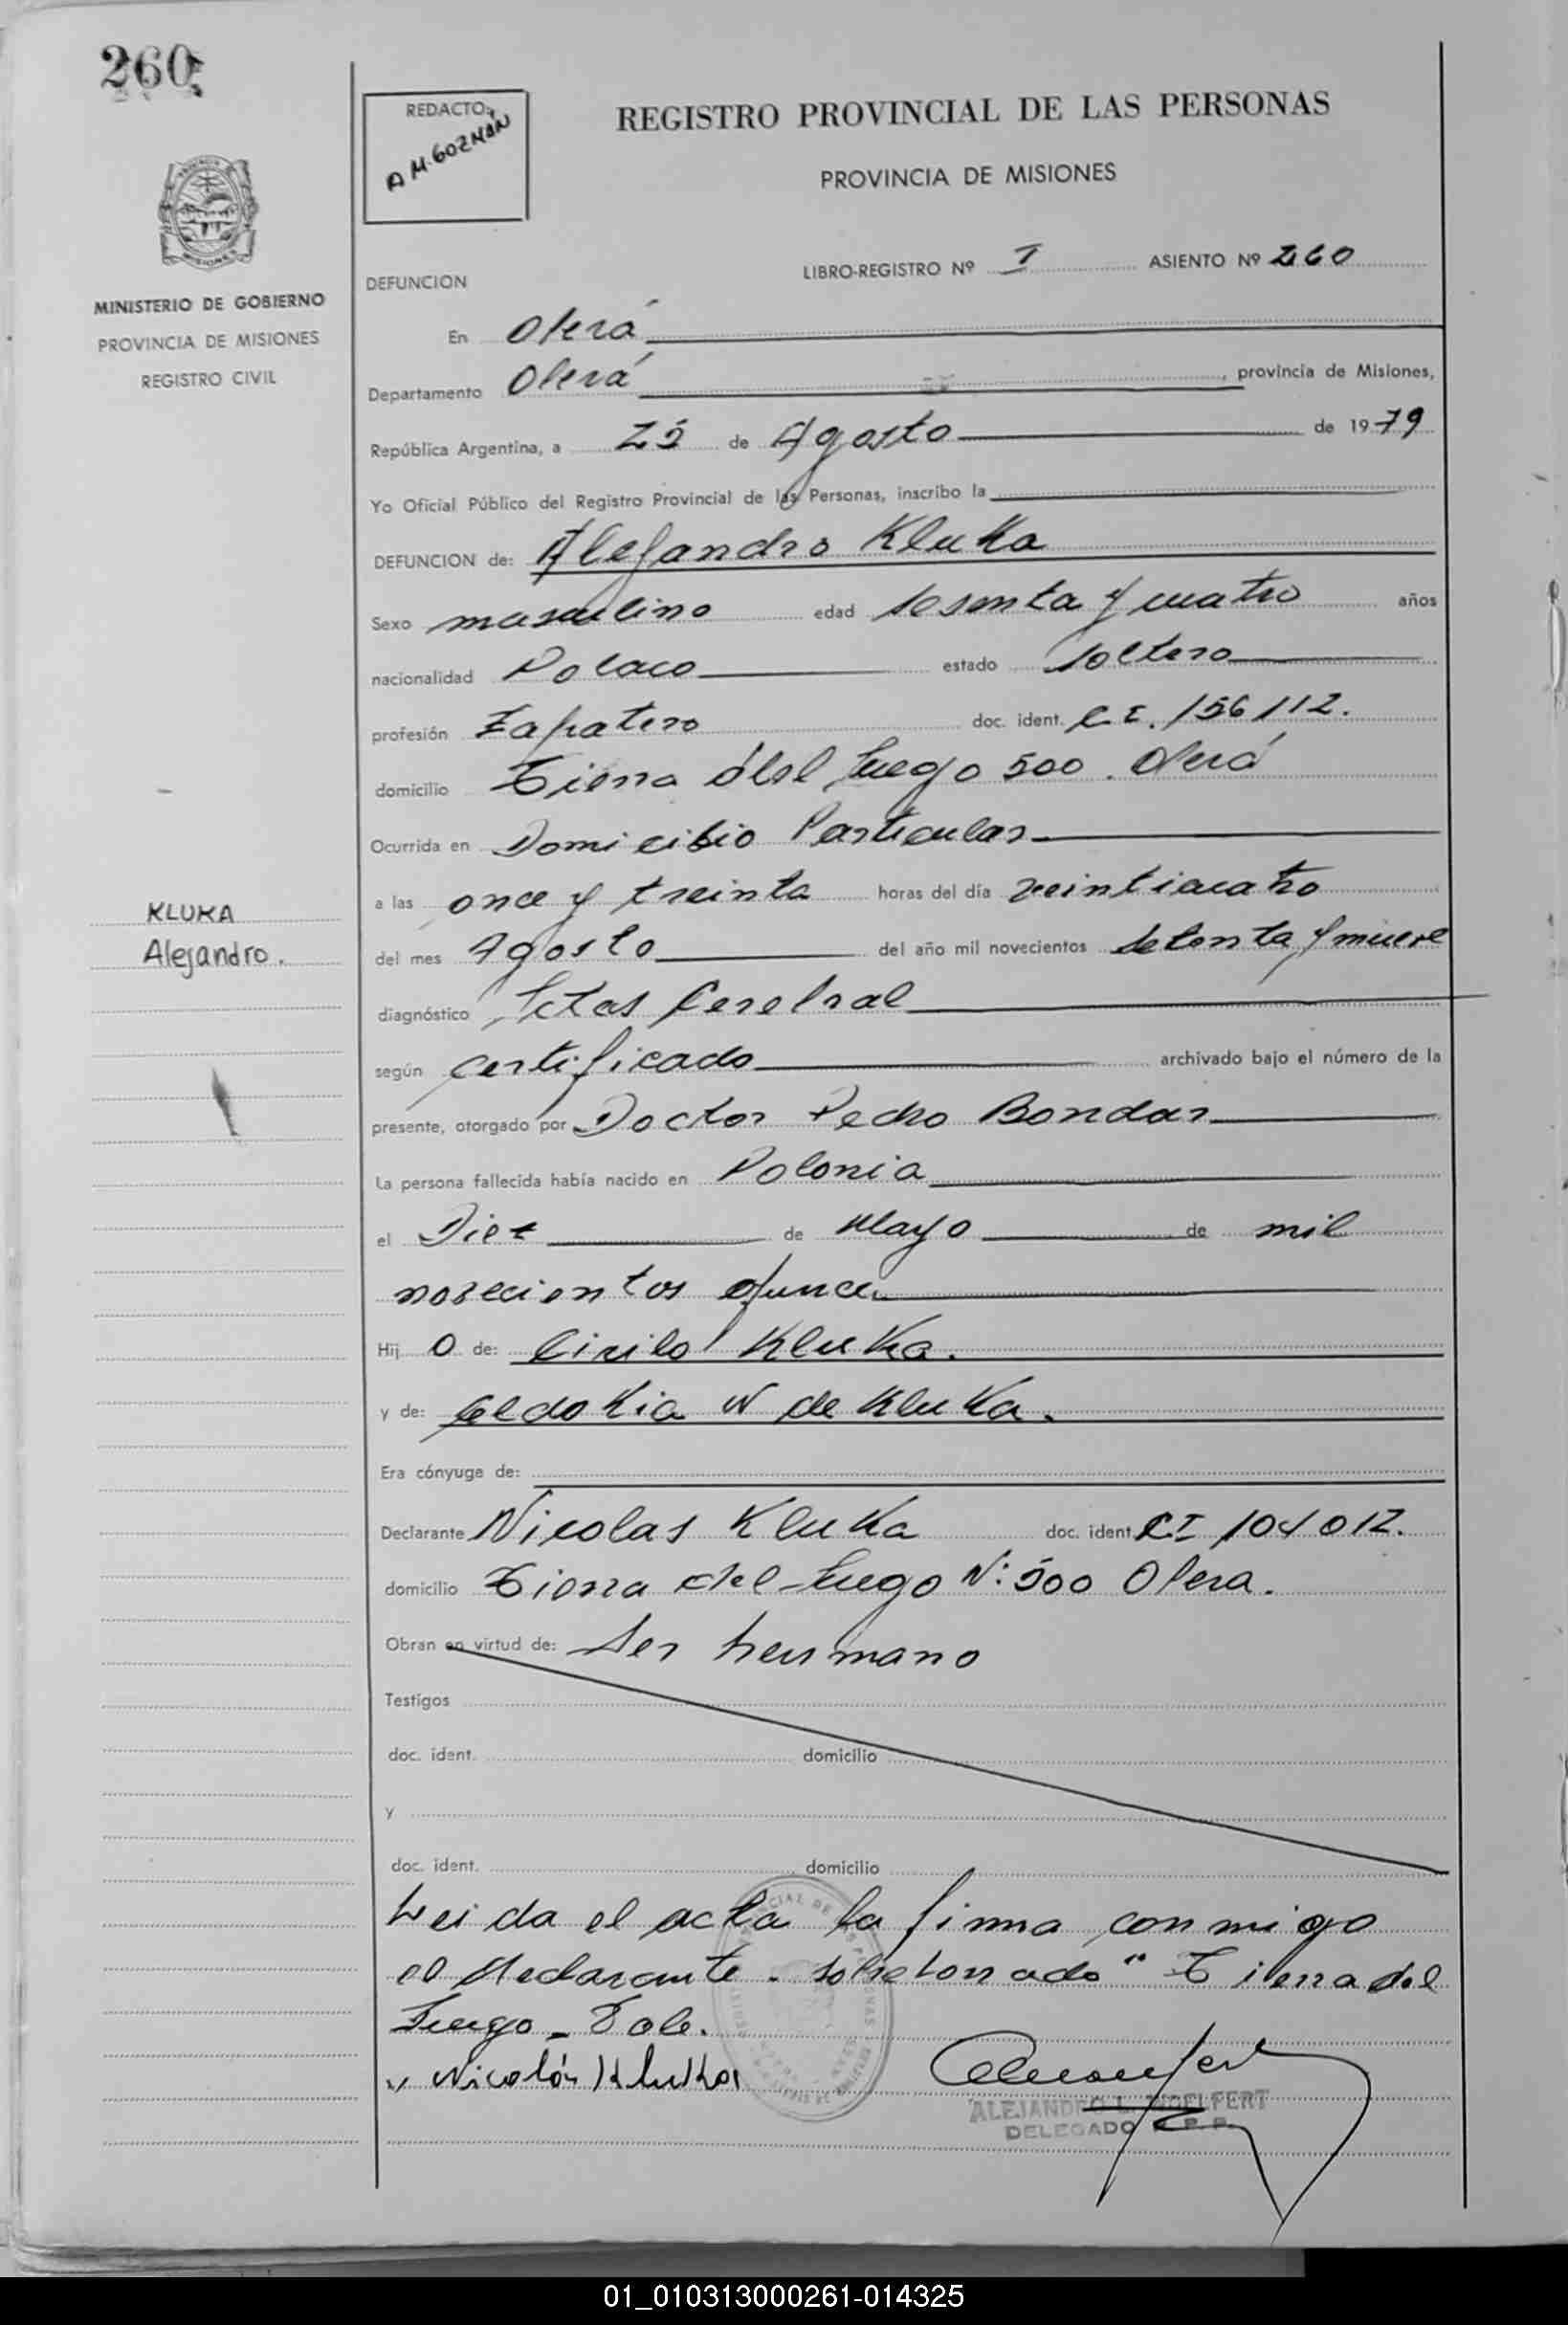 260
REDACTO:
A M. GUZMÁN
REGISTRO PROVINCIAL DE LAS PERSONAS
PROVINCIA DE MISIONES
LIBRO-REGISTRO Nº I ASIENTO Nº 260
DEFUNCION
MINISTERIO DE GOBIERNO
PROVINCIA DE MISIONES
REGISTRO CIVIL
En Oberá
Departamento Oberá, provincia de Misiones,
República Argentina, a 25 de Agosto de 1979
Yo Oficial Público del Registro Provincial de las Personas, inscribo la
DEFUNCION de: Alejandro Kluka
Sexo masculino edad sesenta y cuatro años
nacionalidad Polaco estado Soltero
profesión Zapatero doc. ident. C.I. 156112.
domicilio Tierra del Fuego 500. Oberá
Ocurrida en Domicilio Particular
KLUKA
Alejandro.
a las once y treinta horas del día veinticuatro
del mes Agosto del año mil novecientos setenta y nueve
diagnóstico Cerebral
según certificado archivado bajo el número de la
presente, otorgado por Doctor Pedro Bondar
La persona fallecida había nacido en Polonia
el Diez de Mayo de mil
novecientos quince
Hij o de: Cirilo Kluka.
y de: de Kluka.
Era cónyuge de:
Declarante Nicolas Kluka doc. ident. CI 104012.
domicilio Tierra del Fuego Nº: 500 Obera.
Obran en virtud de: Ser hermano
Testigos
doc. ident. domicilio
y
doc. ident. domicilio
Leida el acta la firma conmigo
el declarante. sobreborrado "Tierra del
Fuego - Vale.
Nicolás Kluka
ALEJANDRO L. INGELFERT
DELEGADO R. P. P.
01_010313000261-014325